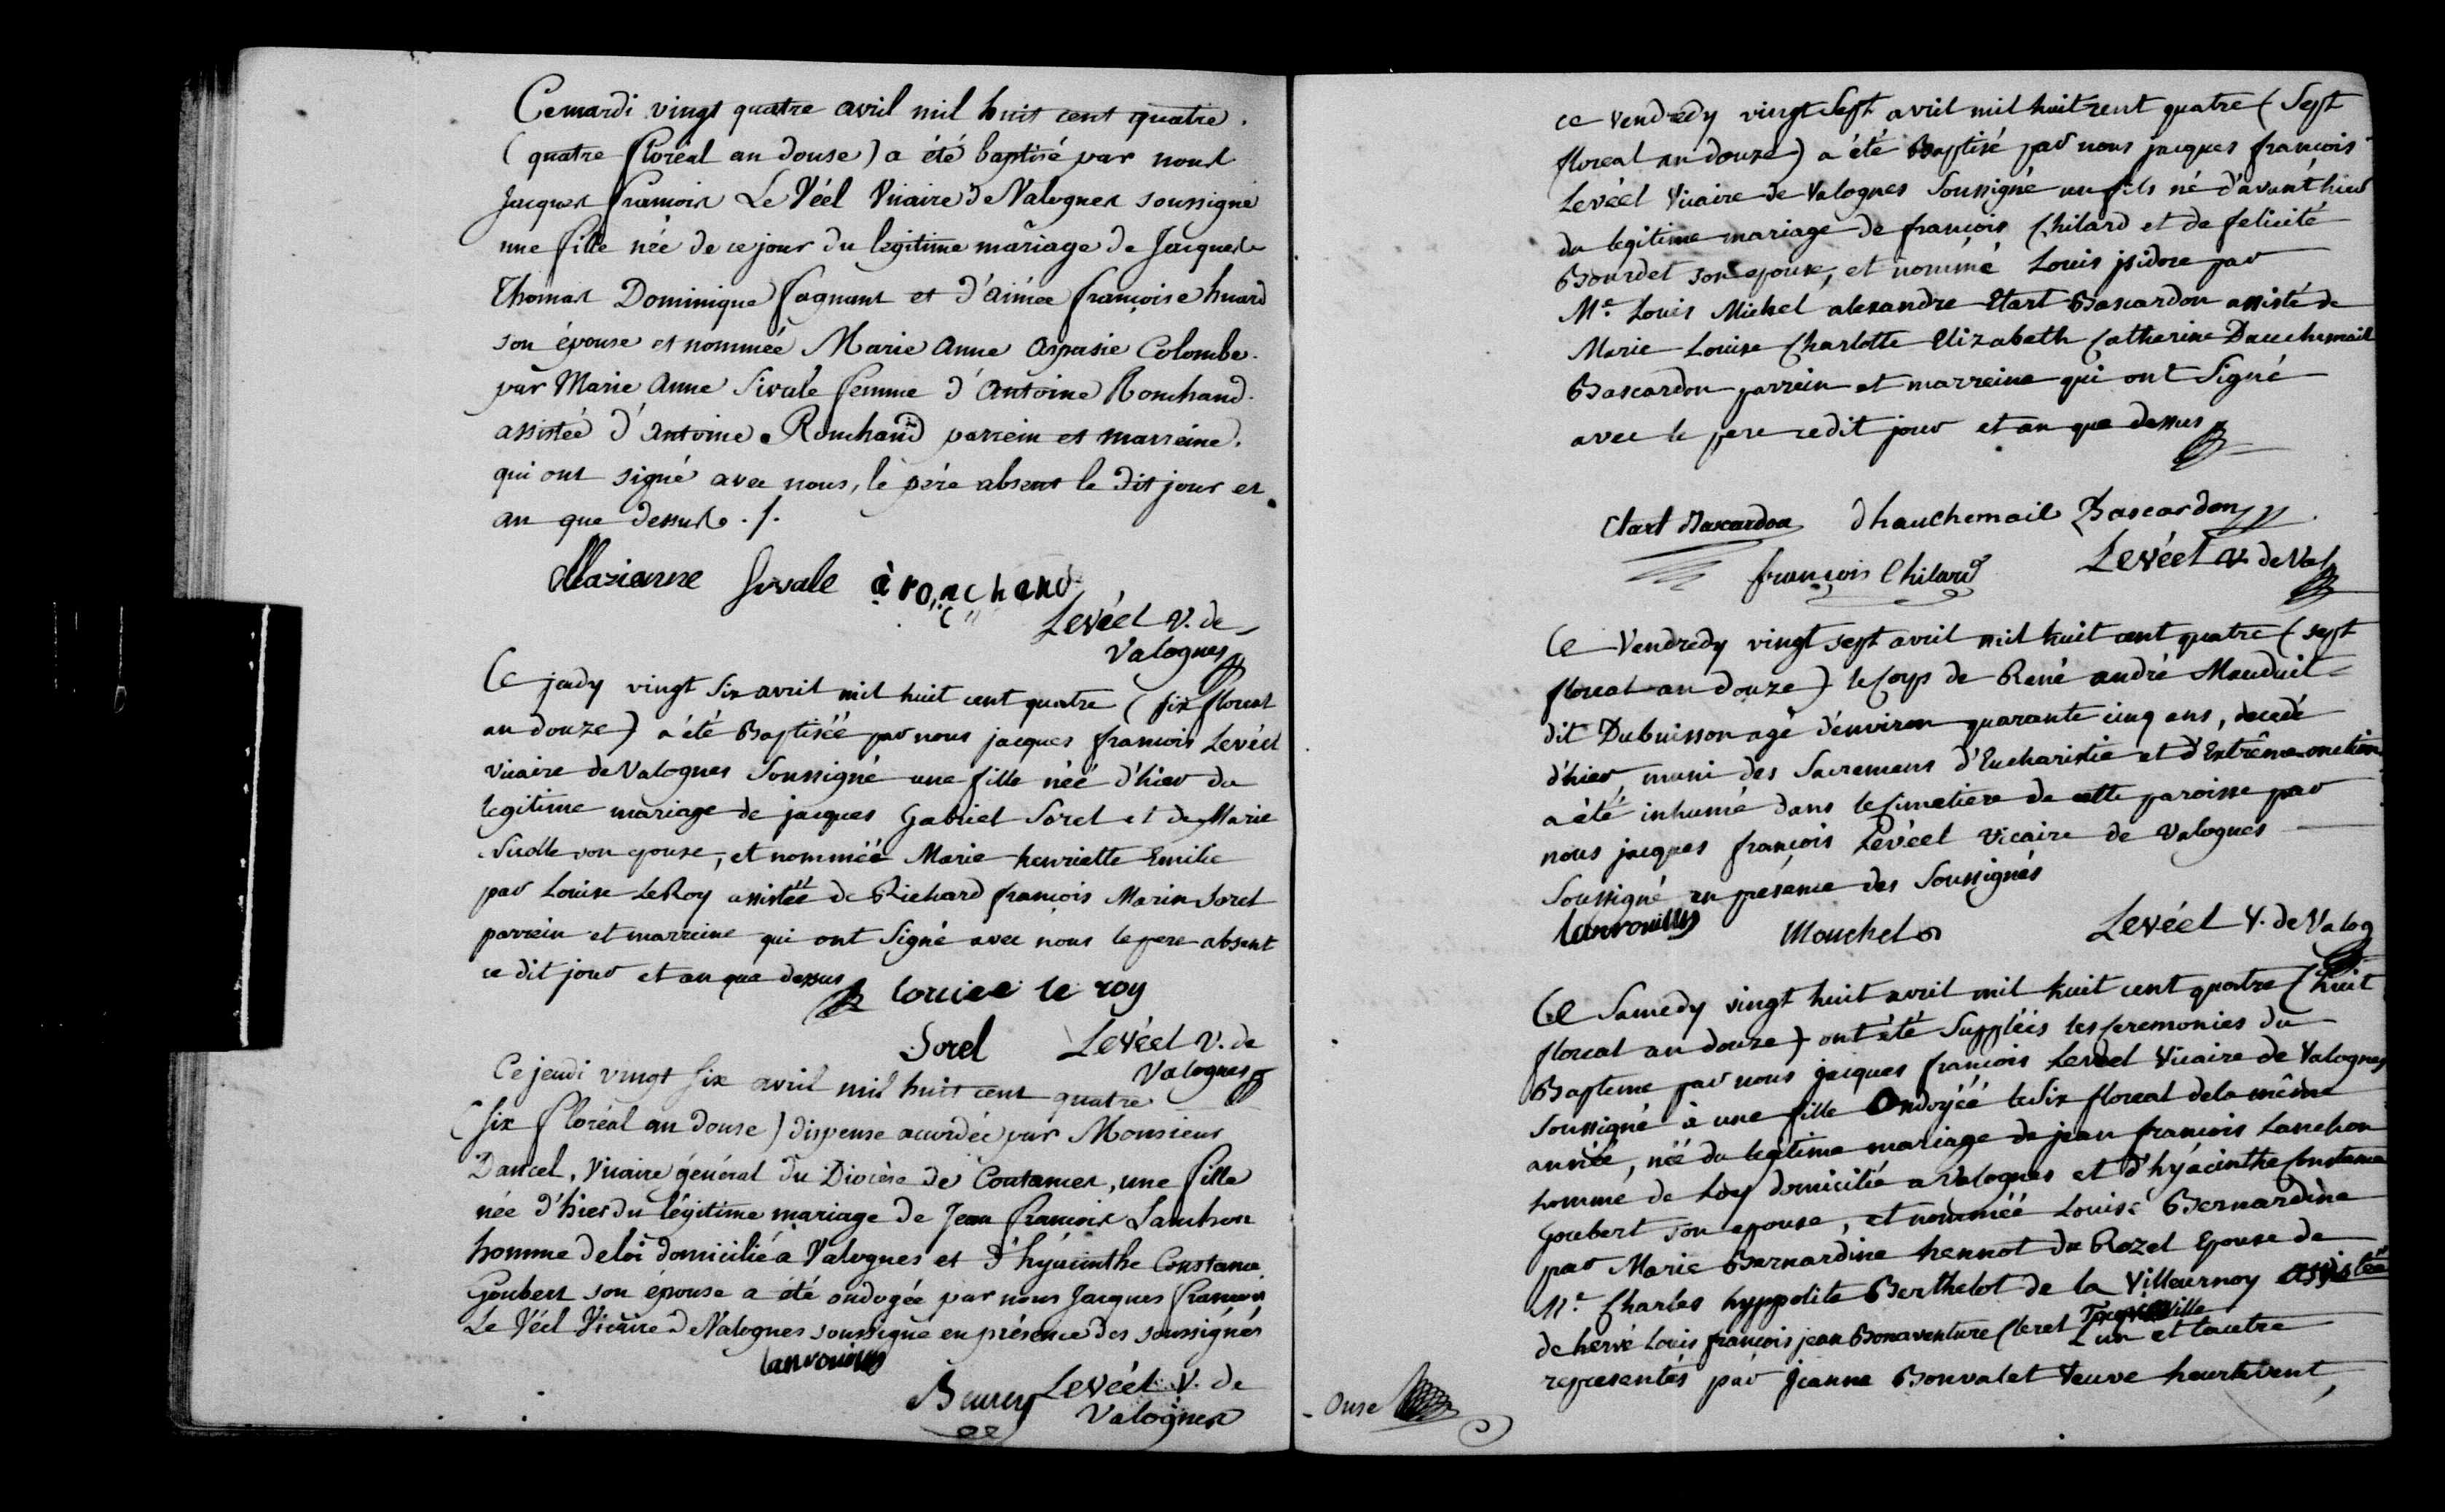 Ce mardi vingt quatre avril mil huit cent quatre.
( quatre floréal an douse ) a été baptisé par nous
Jacques François Le Véel Vicaire de Valognes soussigné
une fille née de ce jour du légitime mariage de Jacques
Thomas Dominique fagnant et d'aimée françoise huard
son épouse et nommée Marie anne aspasie Colombe.
par Marie anne Sivale femme d'antoine Ronchand.
assistée d'antoine Ronchand parrein et marreine.
qui ont signé avec nous, le père absent le dit jour et
an que dessus ./.
Marianne Sivale à ronchand
Levéel V. de
Valognes
Ce jeudy vingt six avril mil huit cent quatre ( six floreal
an douze ) a été Baptiséé par nous jacques françois Levéel
vicaire de Valognes Soussigné une fille néé d'hier du
legitime mariage de jacques Gabriel Sorel et de Marie
son epouse, et nomméé Marie henriette Emilie
par Louise LeRoy assistéé de Richard françois Marin Sorel
parrein et marreine qui ont Signé avec nous le pere absent
ce dit jour et an que dessus
louise le roy
Sorel Levéel V. de
Valognes
Ce jeudi vingt six avril mil huit cent quatre
( six floréal an douse ) dispense accordée par Monsieur
Dancel, Vicaire général du Diocèse de Coutances, une fille
née d'hier du légitime mariage de Jean françois Lanchon
homme de loi domicilié à Valognes et d'hyacinthe Constance
Goubert son épouse a été ondoyée par nous Jacques françois
Le Véel Vicaire de Valognes soussigné en présence des soussignés
Lanrouilles
Levéel V. de
Valognes
ce vendredy vingt Sept avril mil huit cent quatre ( Sept
floreal an douze ) a été Baptisé par nous jacques françois
Levéel Vicaire de Valognes Soussigné un fils né d'avant hier
du legitime mariage de françois Chilard et de felicité
Bourdet son epouse, et nommé Louis jsidore par
Mr. Louis Michel alexandre Etart Bascardon assisté de
Marie Louise Charlotte Elizabeth Catherine Dauchemail
Bascardon parrein et marreine qui ont Signé
avec le pere ce dit jour et an que dessus
Etart Bascardon dhauchemail Bascardon
françois Chilard Levéel V. de Val
Ce Vendredy vingt sept avril mil huit cent quatre ( sept
floreal an douze ) le Corps de René andré Mauduit
dit Dubuisson agé d'environ quarante cinq ans, decedé
d'hier, muni des Sacremens d'Eucharistie et d'Extrême onction
a été inhumé dans le Cimetiere de cette paroisse par
nous jacques françois Levéel Vicaire de Valognes
Soussigné en presence des Soussignés
Lanrouilles Mouchel Levéel V. de Valog
Ce Samedy vingt huit avril mil huit cent quatre ( huit
floreal an douze ) ont été Suppléés les Ceremonies du
Bapteme par nous jacques françois Leveel Vicaire de Valognes
Soussigné à une fille Ondoyéé le Six floreal de la même
année, néé du legitime mariage de jean françois Lanchon
homme de Loy domicilié a Valognes et d'hyacinthe Constance
Goubert son epouse, et nomméé Louise Bernardine
par Marie Bernardine hennot du Rozel Epouse de
Mr. Charles hyppolite Berthelot de la Villeurnoy assistéé
de hervé Louis françois jean Bonaventure Clerel Tocqueville
L'un et l'autre
representés par Jeanne Bonvalet Veuve heurtevent,
Onse